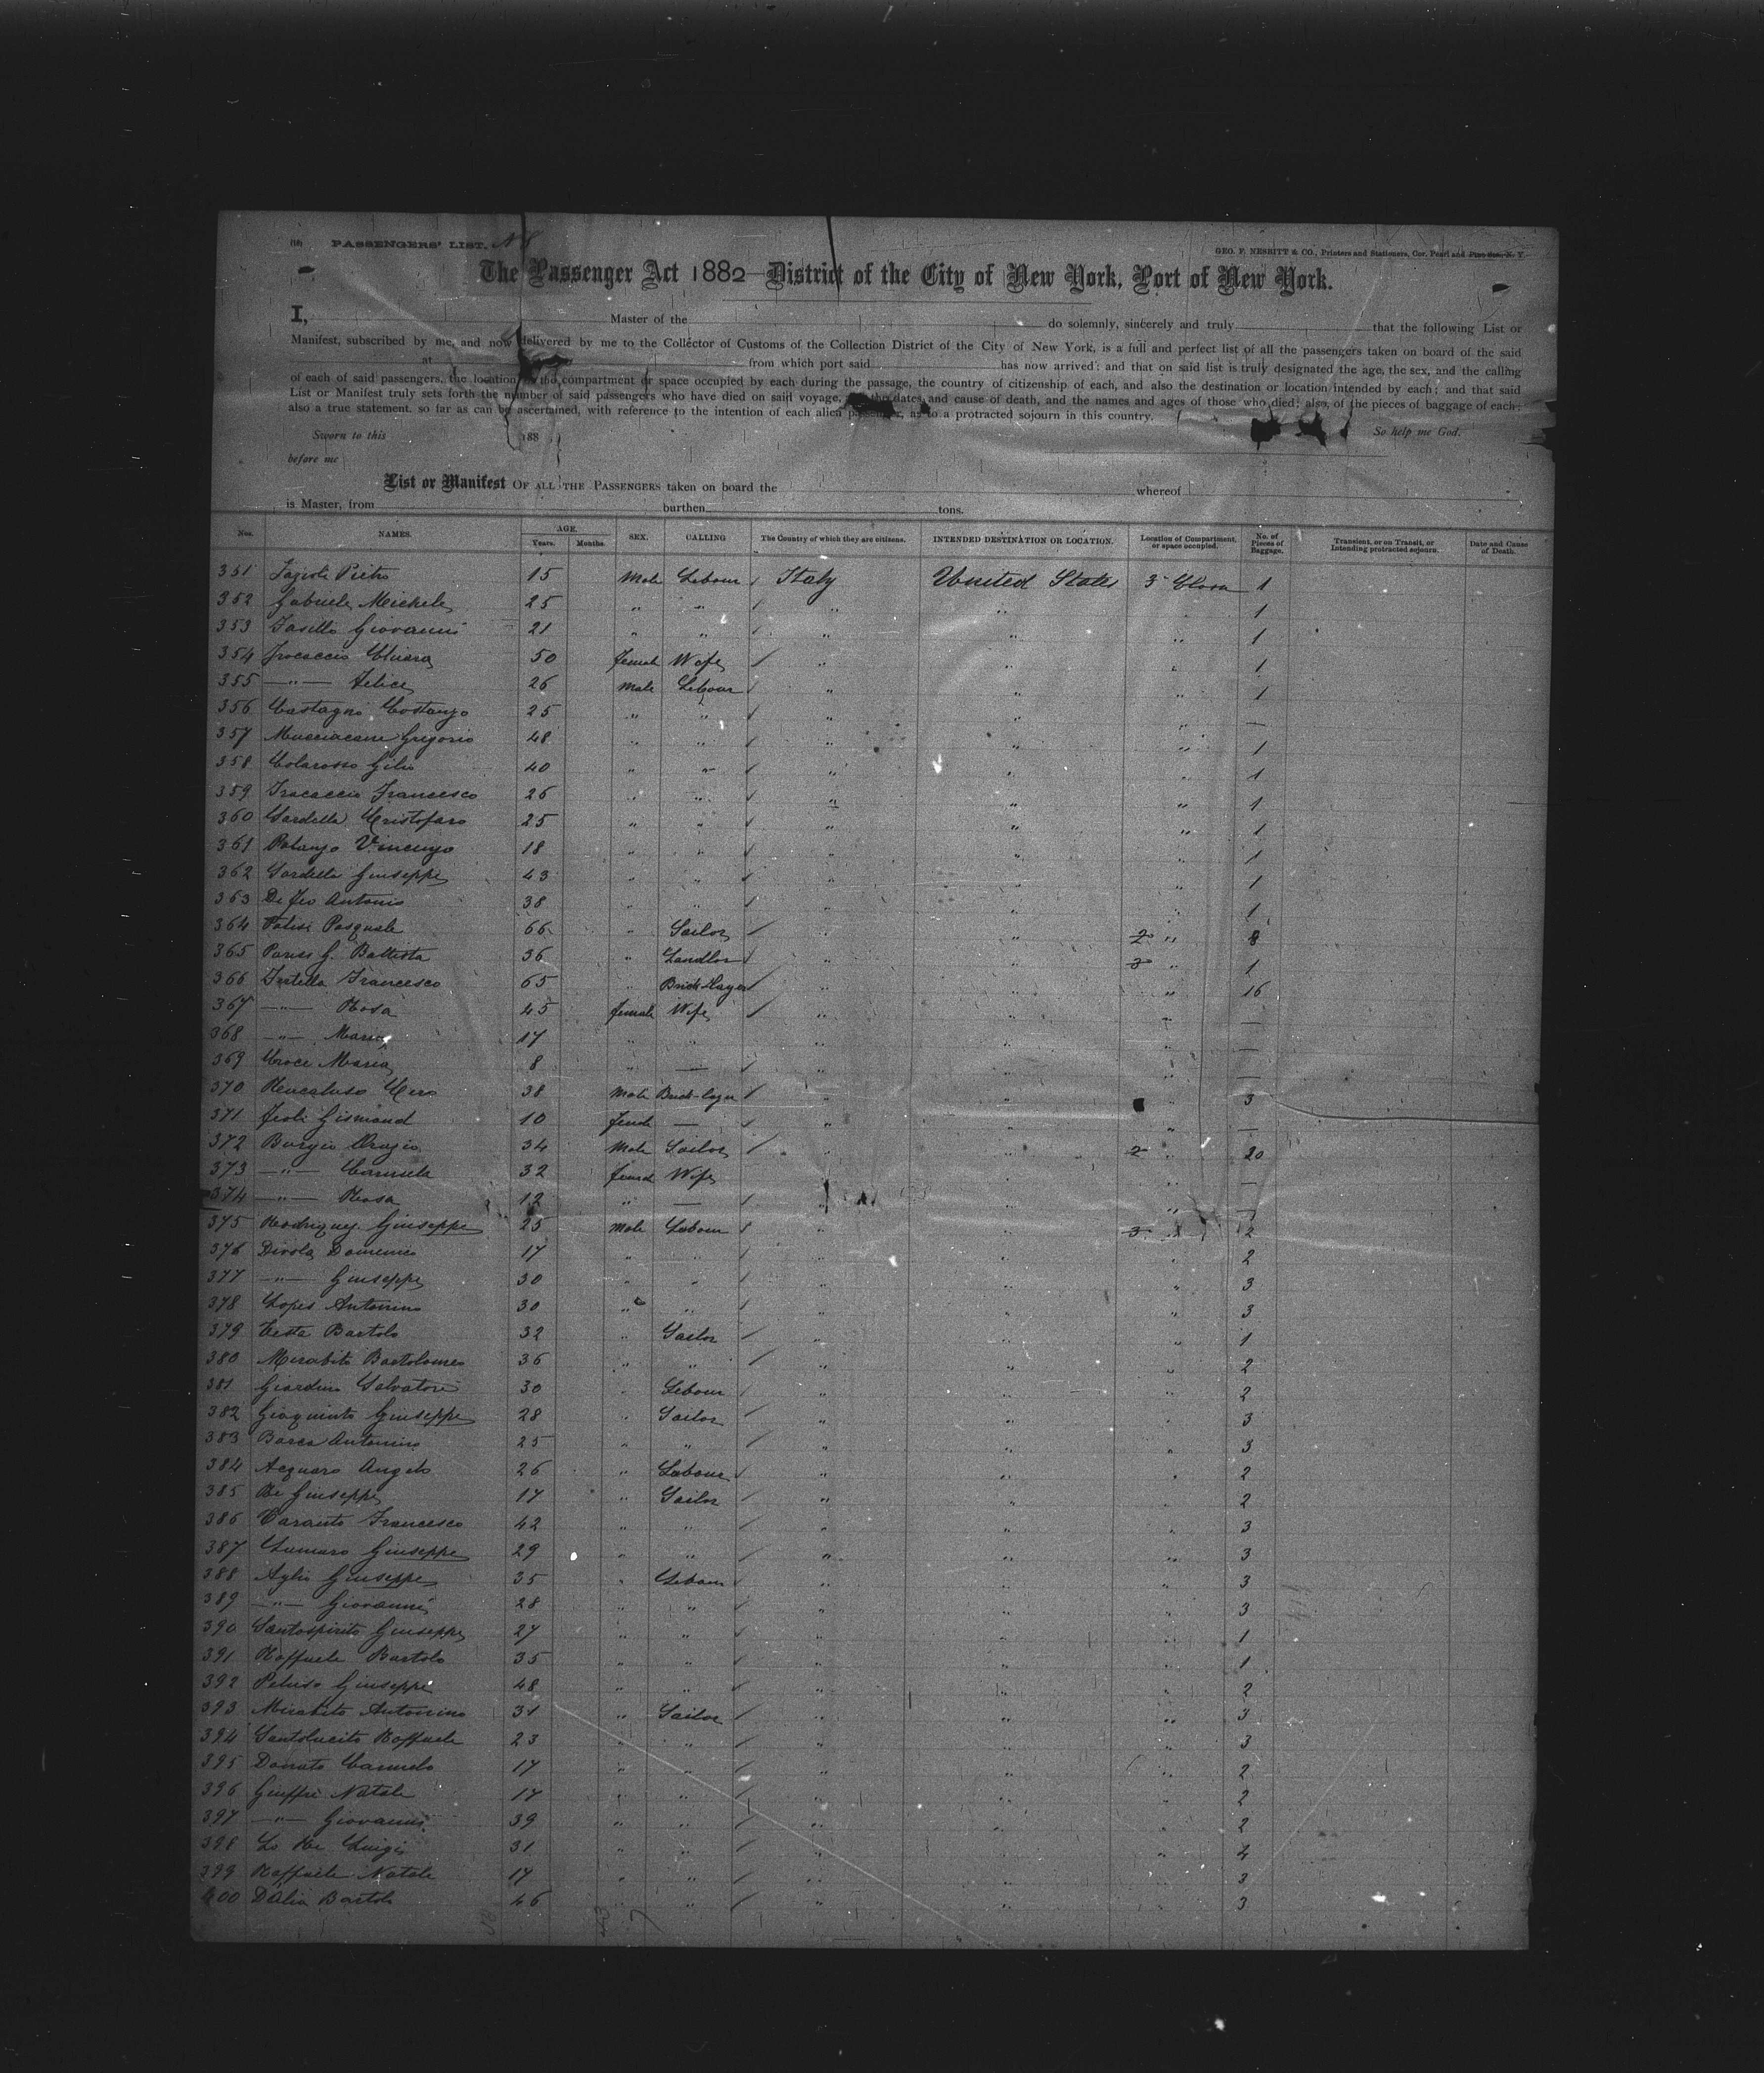 (18) PASSENGERS' LIST. N 8
GEO. F. NESBITT & CO., Printers and Stationers, Cor. Pearl and Pine Sts., N. Y.
The Passenger Act 1882 District of the City of New York, Port of New York.
I, Master of the do solemnly, sincerely and truly that the following List or
Manifest, subscribed by me, and now delivered by me to the Collector of Customs of the Collection District of the City of New York, is a full and perfect list of all the passengers taken on board of the said
at from which port said has now arrived: and that on said list is truly designated the age, the sex, and the calling
of each of said passengers, the location of the compartment or space occupied by each during the passage, the country of citizenship of each, and also the destination or location intended by each; and that said
List or Manifest truly sets forth the number of said passengers who have died on said voyage, the dates and cause of death, and the names and ages of those who died; also, of the pieces of baggage of each;
also a true statement, so far as can be ascertained, with reference to the intention of each alien passenger, as to a protracted sojourn in this country.
Sworn to this 188 So help me God.
before me
List or Manifest OF ALL THE PASSENGERS taken on board the whereof
is Master, from burthen tons.
Nos. NAMES. AGE. Years. Months. SEX. CALLING The Country of which they are citizens. INTENDED DESTINATION OR LOCATION. Location of Compartment, or space occupied. No. of Pieces of Baggage. Transient, or on Transit, or Intending protracted sojourn. Date and Cause of Death.
351 Pietro 15 Male Labour Italy United States 3 Class 1
352 Gabriele Michele 25 " " " " 1
353 Fasillo Giovanni 21 " " " " " 1
354 Chiara 50 female Wife " " " 1
355 —"— Felice 26 Male Labour " " " 1
356 Castagni Costanzo 25 " " " " " —
357 Gregorio 48 " " " " " 1
358 Colarosso 40 " " " " " 1
359 Francesco 26 " " " " " 1
360 Sardella Cristofaro 25 " " " " " 1
361 Vincenzo 18 " " " " " 1
362 Sardella Giuseppe 43 " " " " 1
363 De Feo Antonio 38 " " " " 1
364 Pasquale 66 " Sailor " " 2 " 8
365 G. Battista 36 " Landlor " 3 " 1
366 Francesco 65 " Brick-layer " " " 16
367 —"— Rosa 45 female Wife " " " —
368 —"— Maria 17 " " " " " —
369 Croce Maria 8 " — " " " —
370 38 Male Brick-layer " " " 3
371 Gismond 10 female — " " " —
372 Burgio Orazio 34 Male Sailor " " 2 " 20
373 —"— Carmela 32 female Wife " " —
374 —"— Rosa 12 " — " " " —
375 Rodriguez Giuseppe 25 Male Labour " " 3 " 2
376 Domenico 17 " " " " " 2
377 —"— Giuseppe 30 " " " " " 3
378 Lopes Antonino 30 " " " " " 3
379 Testa Bartolo 32 " Sailor " " " 1
380 Mirabito Bartolomeo 36 " " " " " 2
381 Giardino Salvatore 30 " Labour " " " 2
382 Giaquinto Giuseppe 28 " Sailor " " " 3
383 Barca Antonino 25 " " " " " 3
384 Acquaro Angelo 26 " Labour " " " 2
385 Re Giuseppe 17 " Sailor " " " 2
386 Taranto Francesco 42 " " " " " 3
387 Giuseppe 29 " " " " " 3
388 Giuseppe 35 " Labour " " " 3
389 —"— Giovanni 28 " " " " " 3
390 Santospirito Giuseppe 27 " " " " " 1
391 Raffaele Bartolo 35 " " " " " 1
392 Peluso Giuseppe 48 " " " " " 2
393 Mirabito Antonino 31 " Sailor " " " 3
394 Santolucito Raffaele 23 " " " " " 3
395 Donato Carmelo 17 " " " " " 2
396 Giuffre Natale 17 " " " " " 2
397 —"— Giovanni 39 " " " " " 2
398 Lo Re Luigi 31 " " " " " 4
399 Raffaele Natale 17 " " " " " 3
400 D'Alia Bartolo 46 " " " " 3